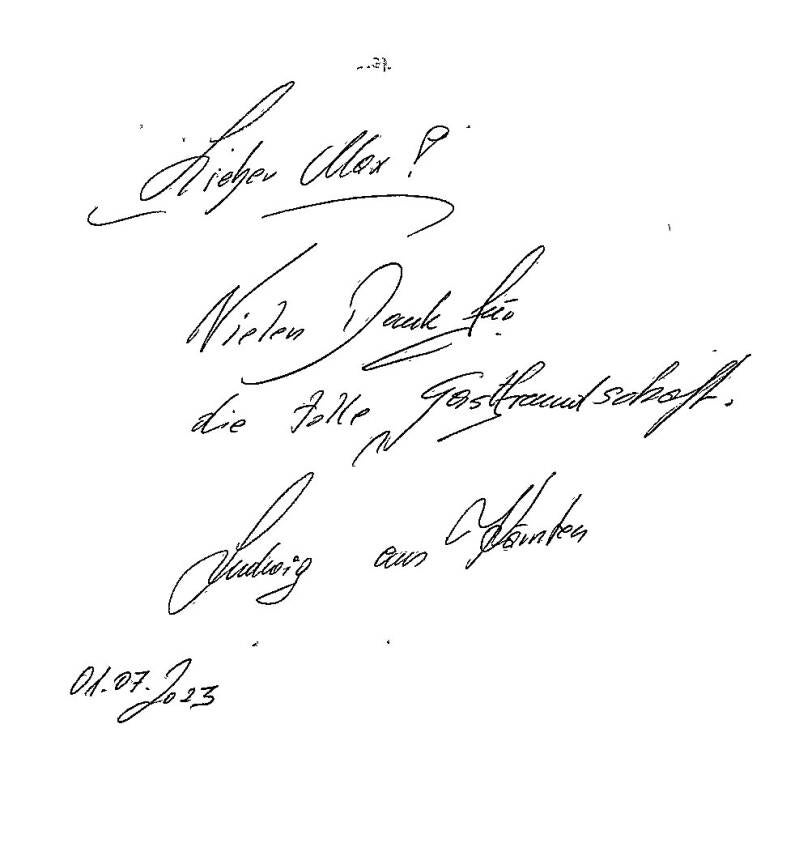 Lieber Max!
Vielen Dank für
die tolle Gastfreundschaft.
Ludwig aus Kärnten
01.07.2023